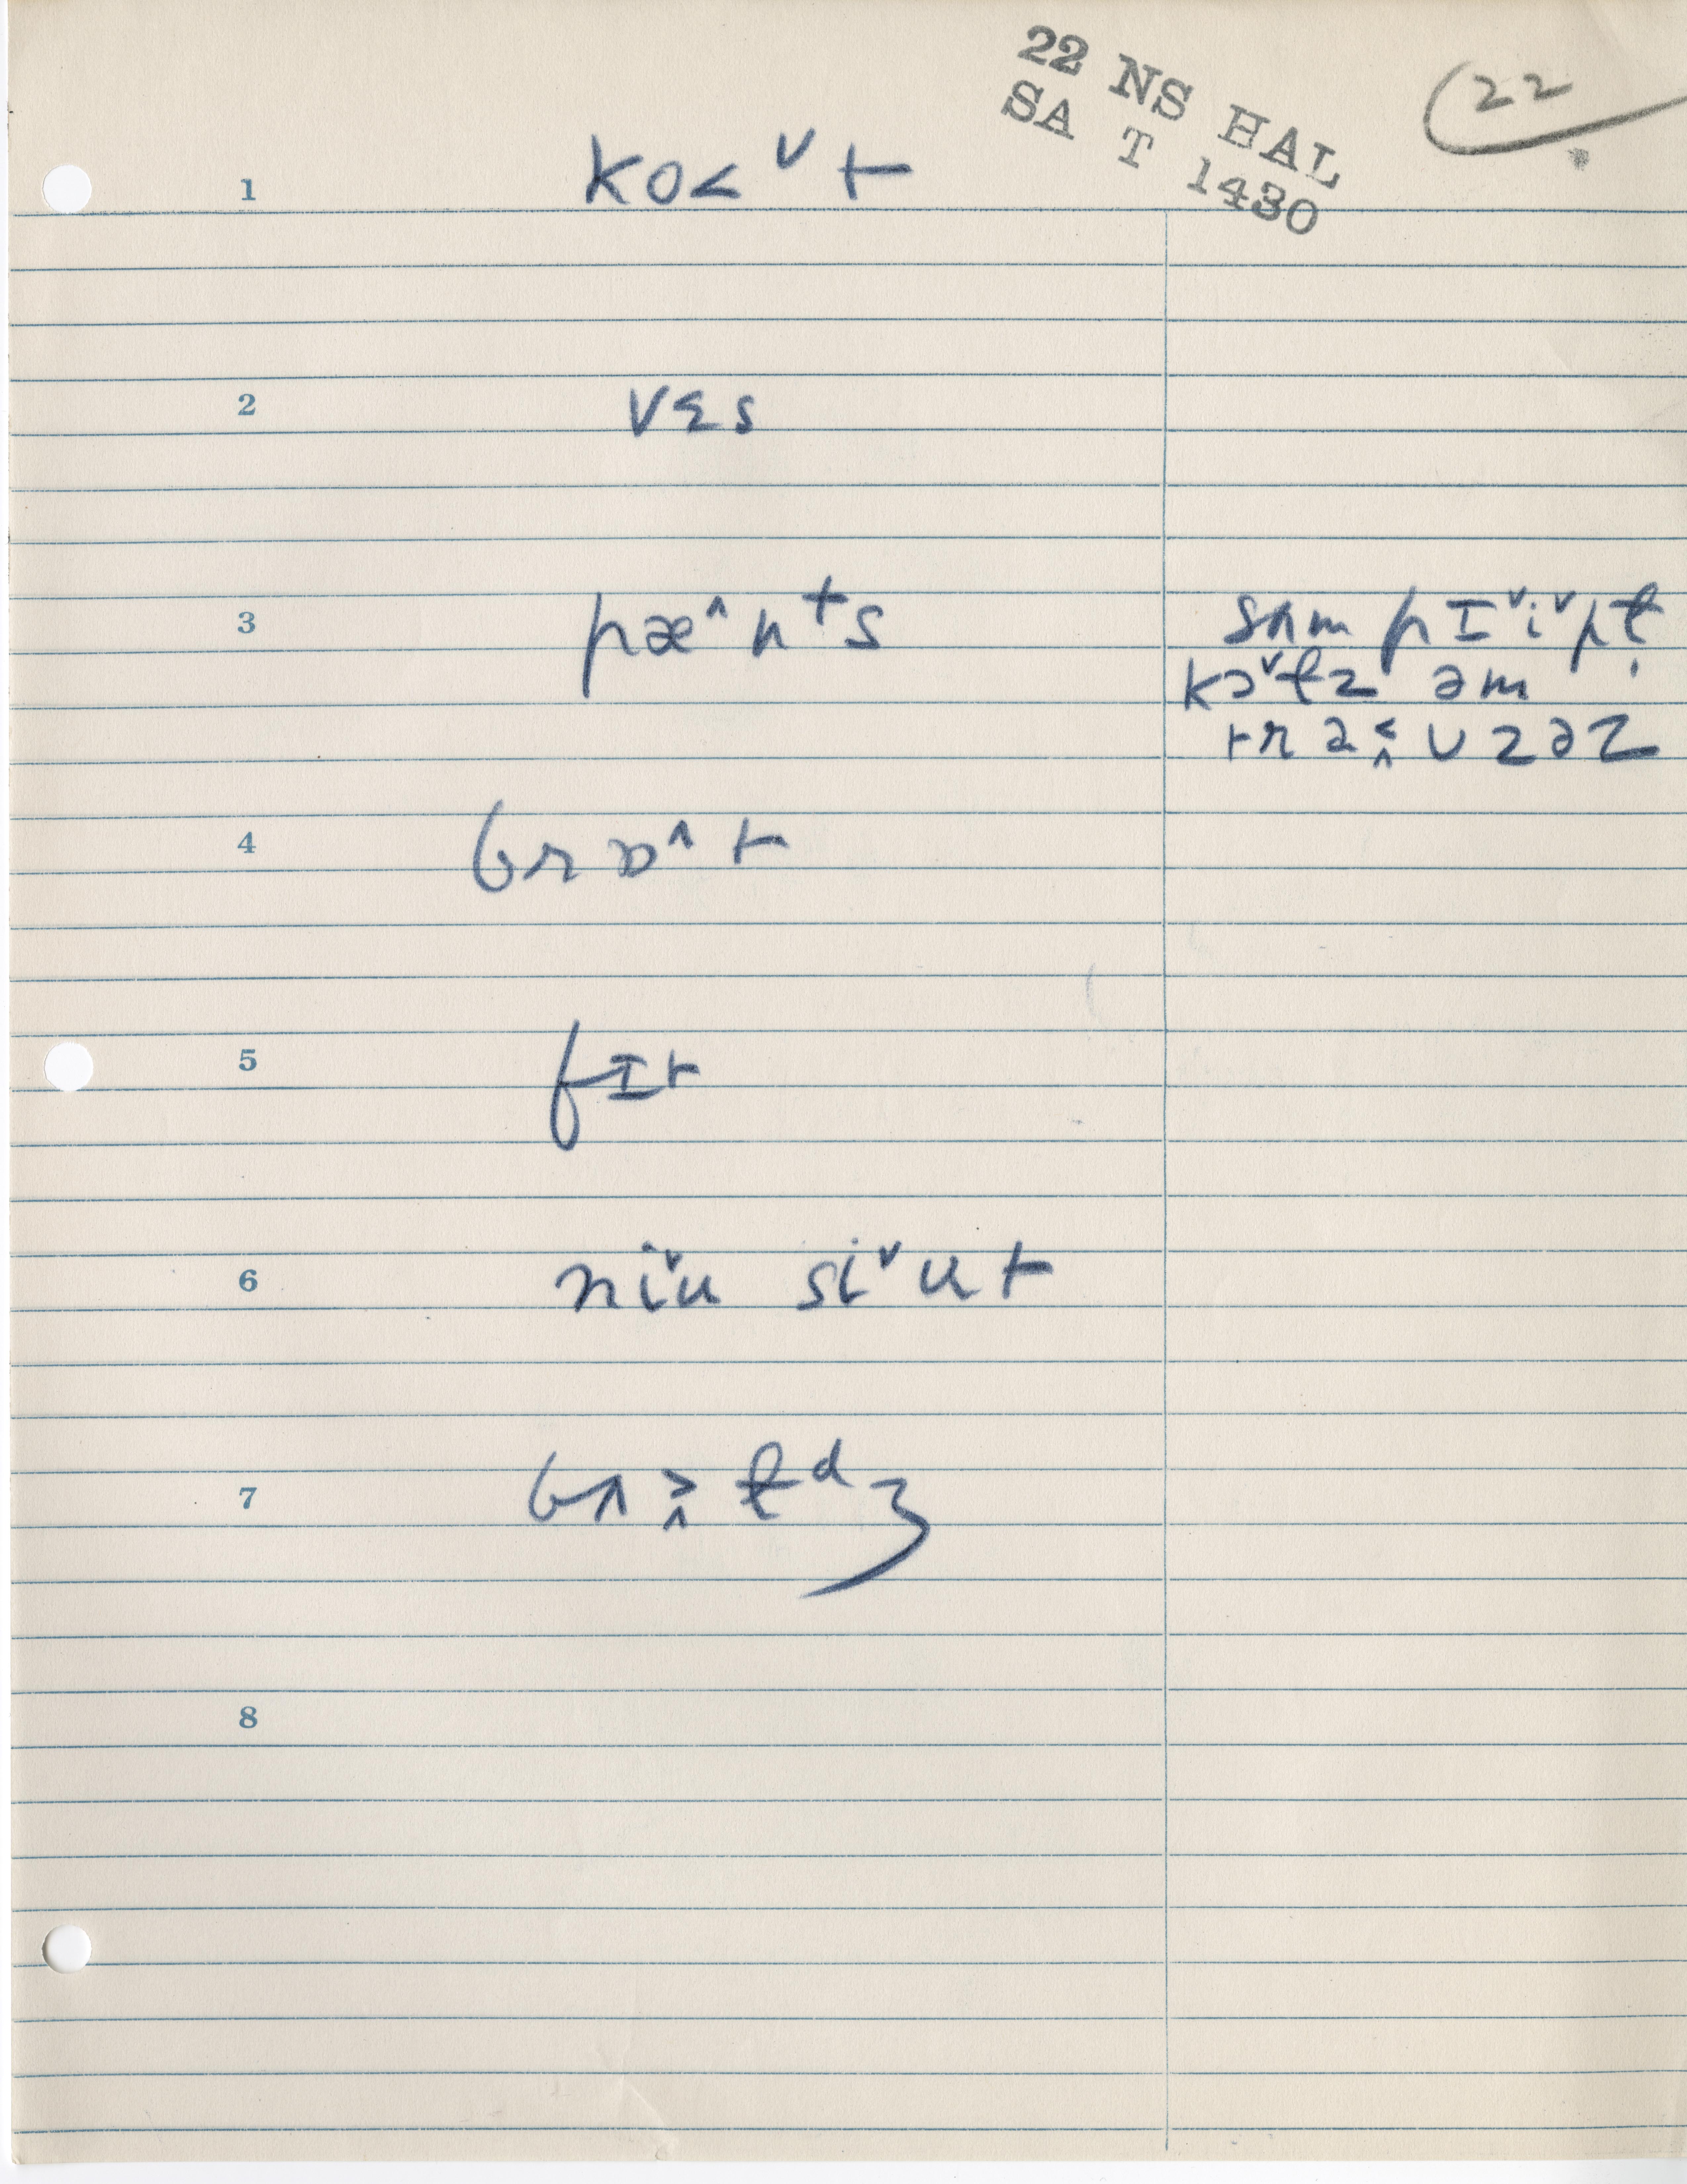 22 NS HAL
SA T 1430
22
1 ko˂ᵛt
2 vɛs
3 pæ^nᵗs
sʌm pɪˇiˇpɫ̩
kɔˇɫz əm
trə˂^ʊzəz
4 brɒ^t
5 fɪt
6 niˇu siˇut
7 bʌ˃^ɫᵈʒ
8